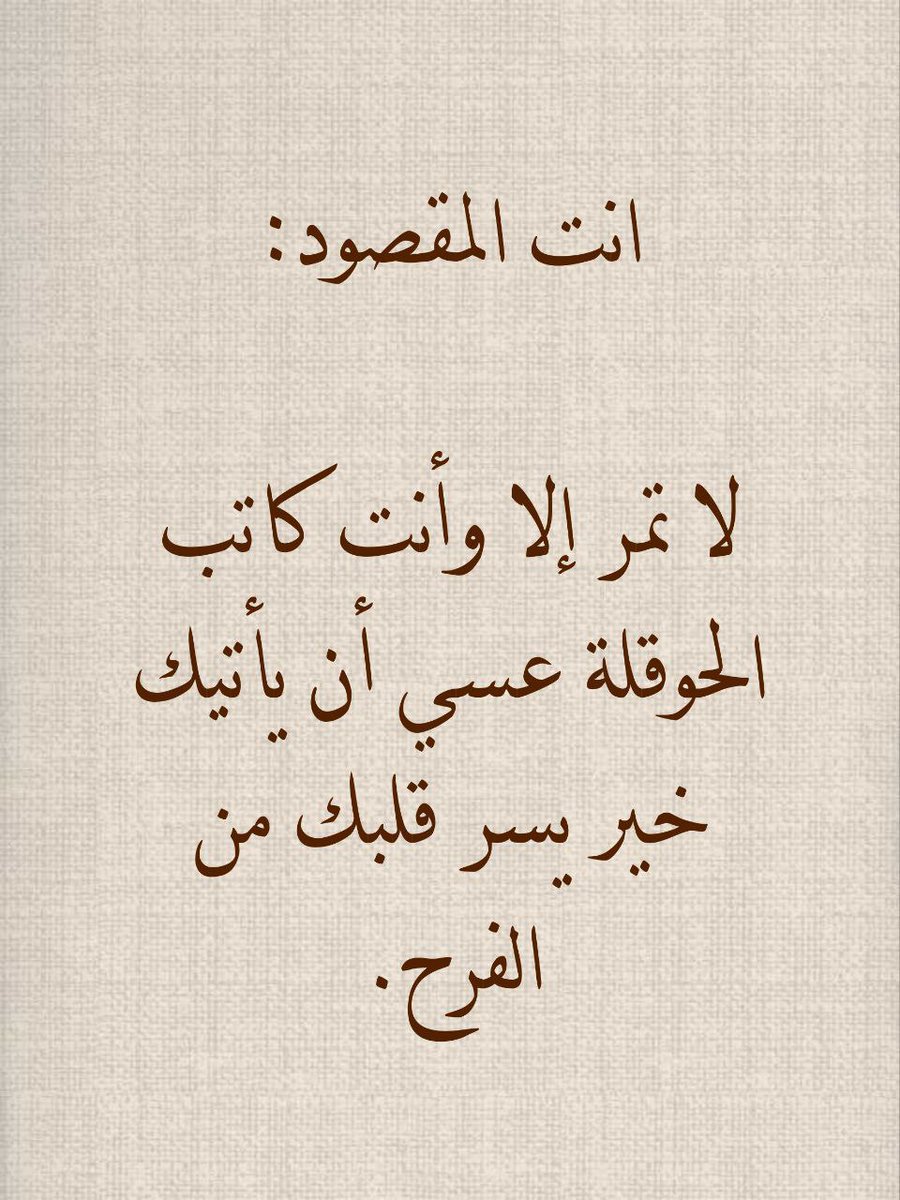 انت المقصود:
لا تمر إلا وأنت كاتب
الحوقلة عسي أن يأتيك
خير يسر قلبك من
الفرح.